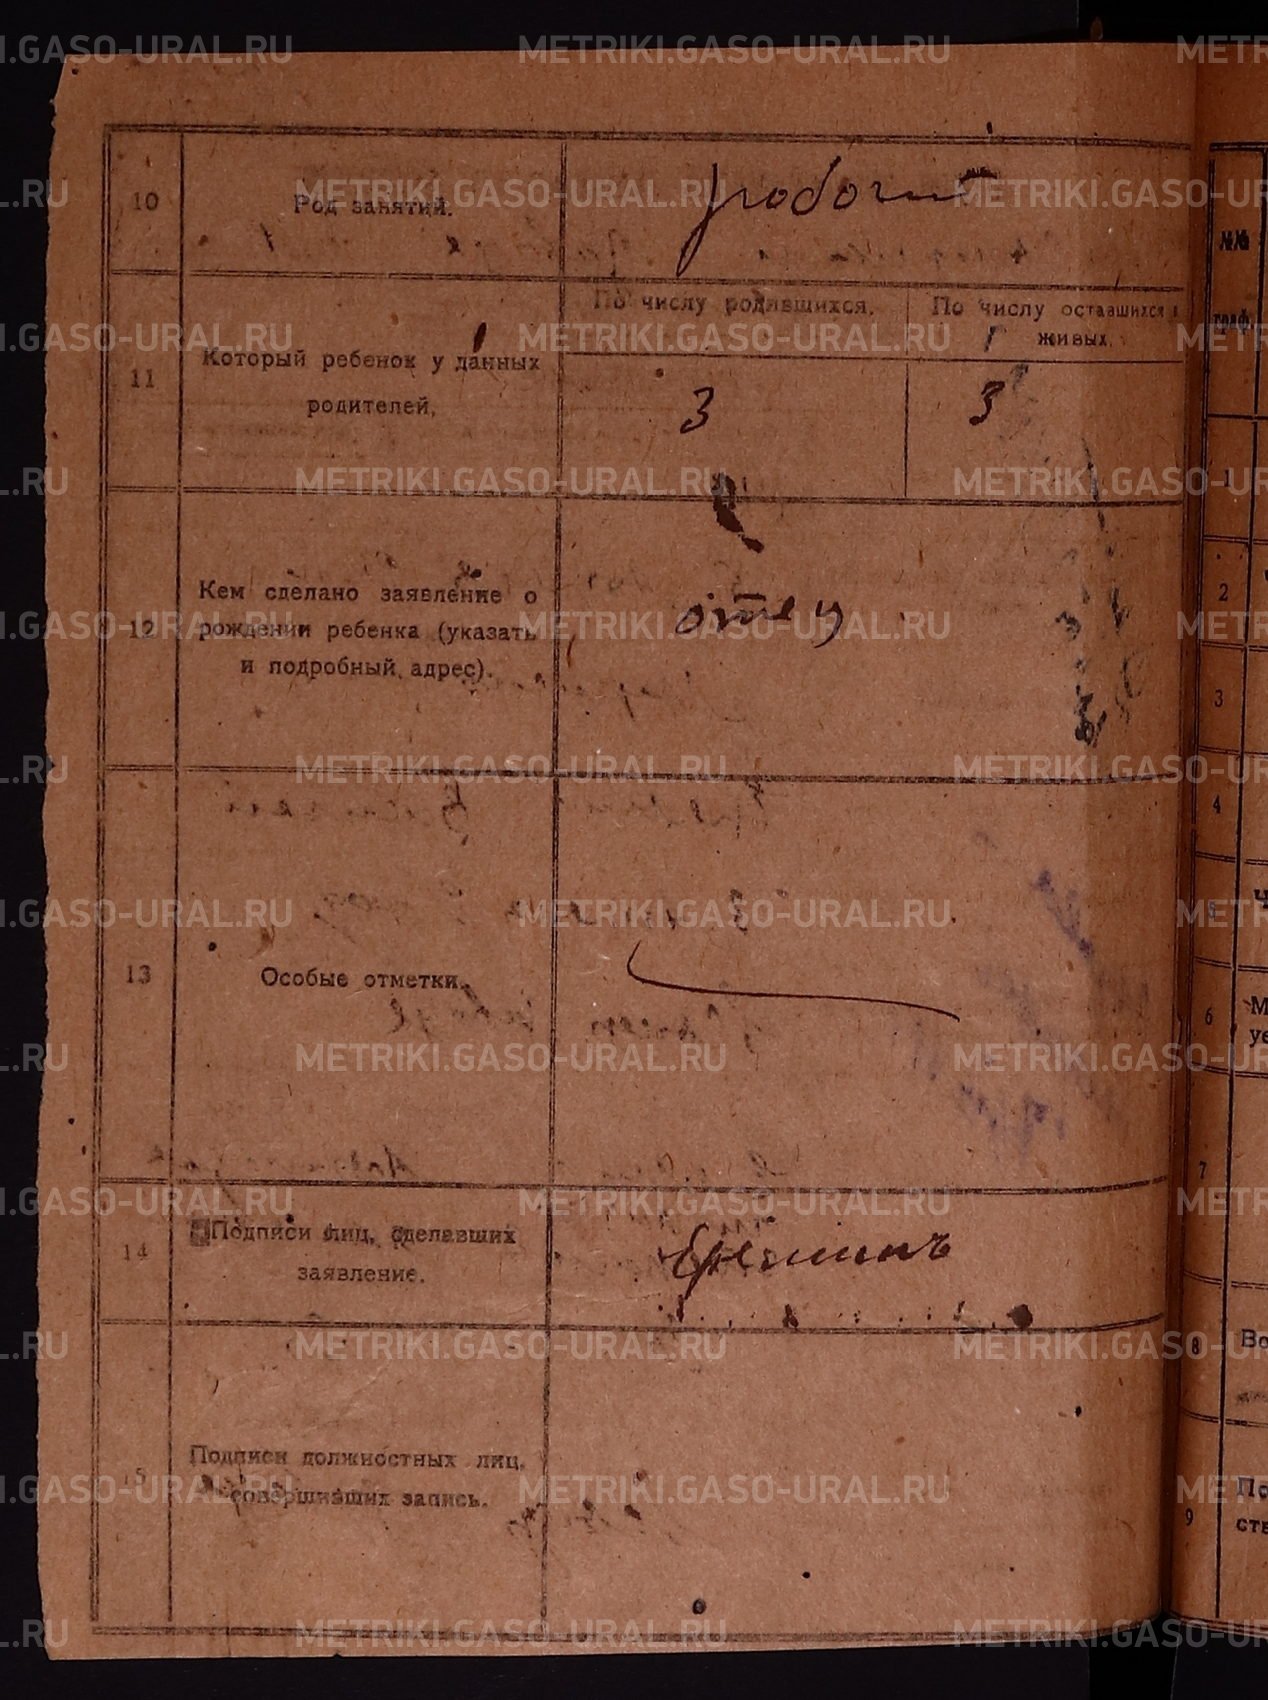 10
Род занятий.
рабочий
11
Который ребенок у данных
родителей,
По числу родившихся.
По числу оставшихся в
живых.
3
3
12
Кем сделано заявление о
рождении ребенка (указать
и подробный адрес).
отец
13
Особые отметки.
14
Подписи лиц, сделавших
заявление.
15
Подписи должностных лиц,
совершивших запись.
№№
граф.
1
2
3
4
5
6
7
8
9
METRIKI.GASO-URAL.RU